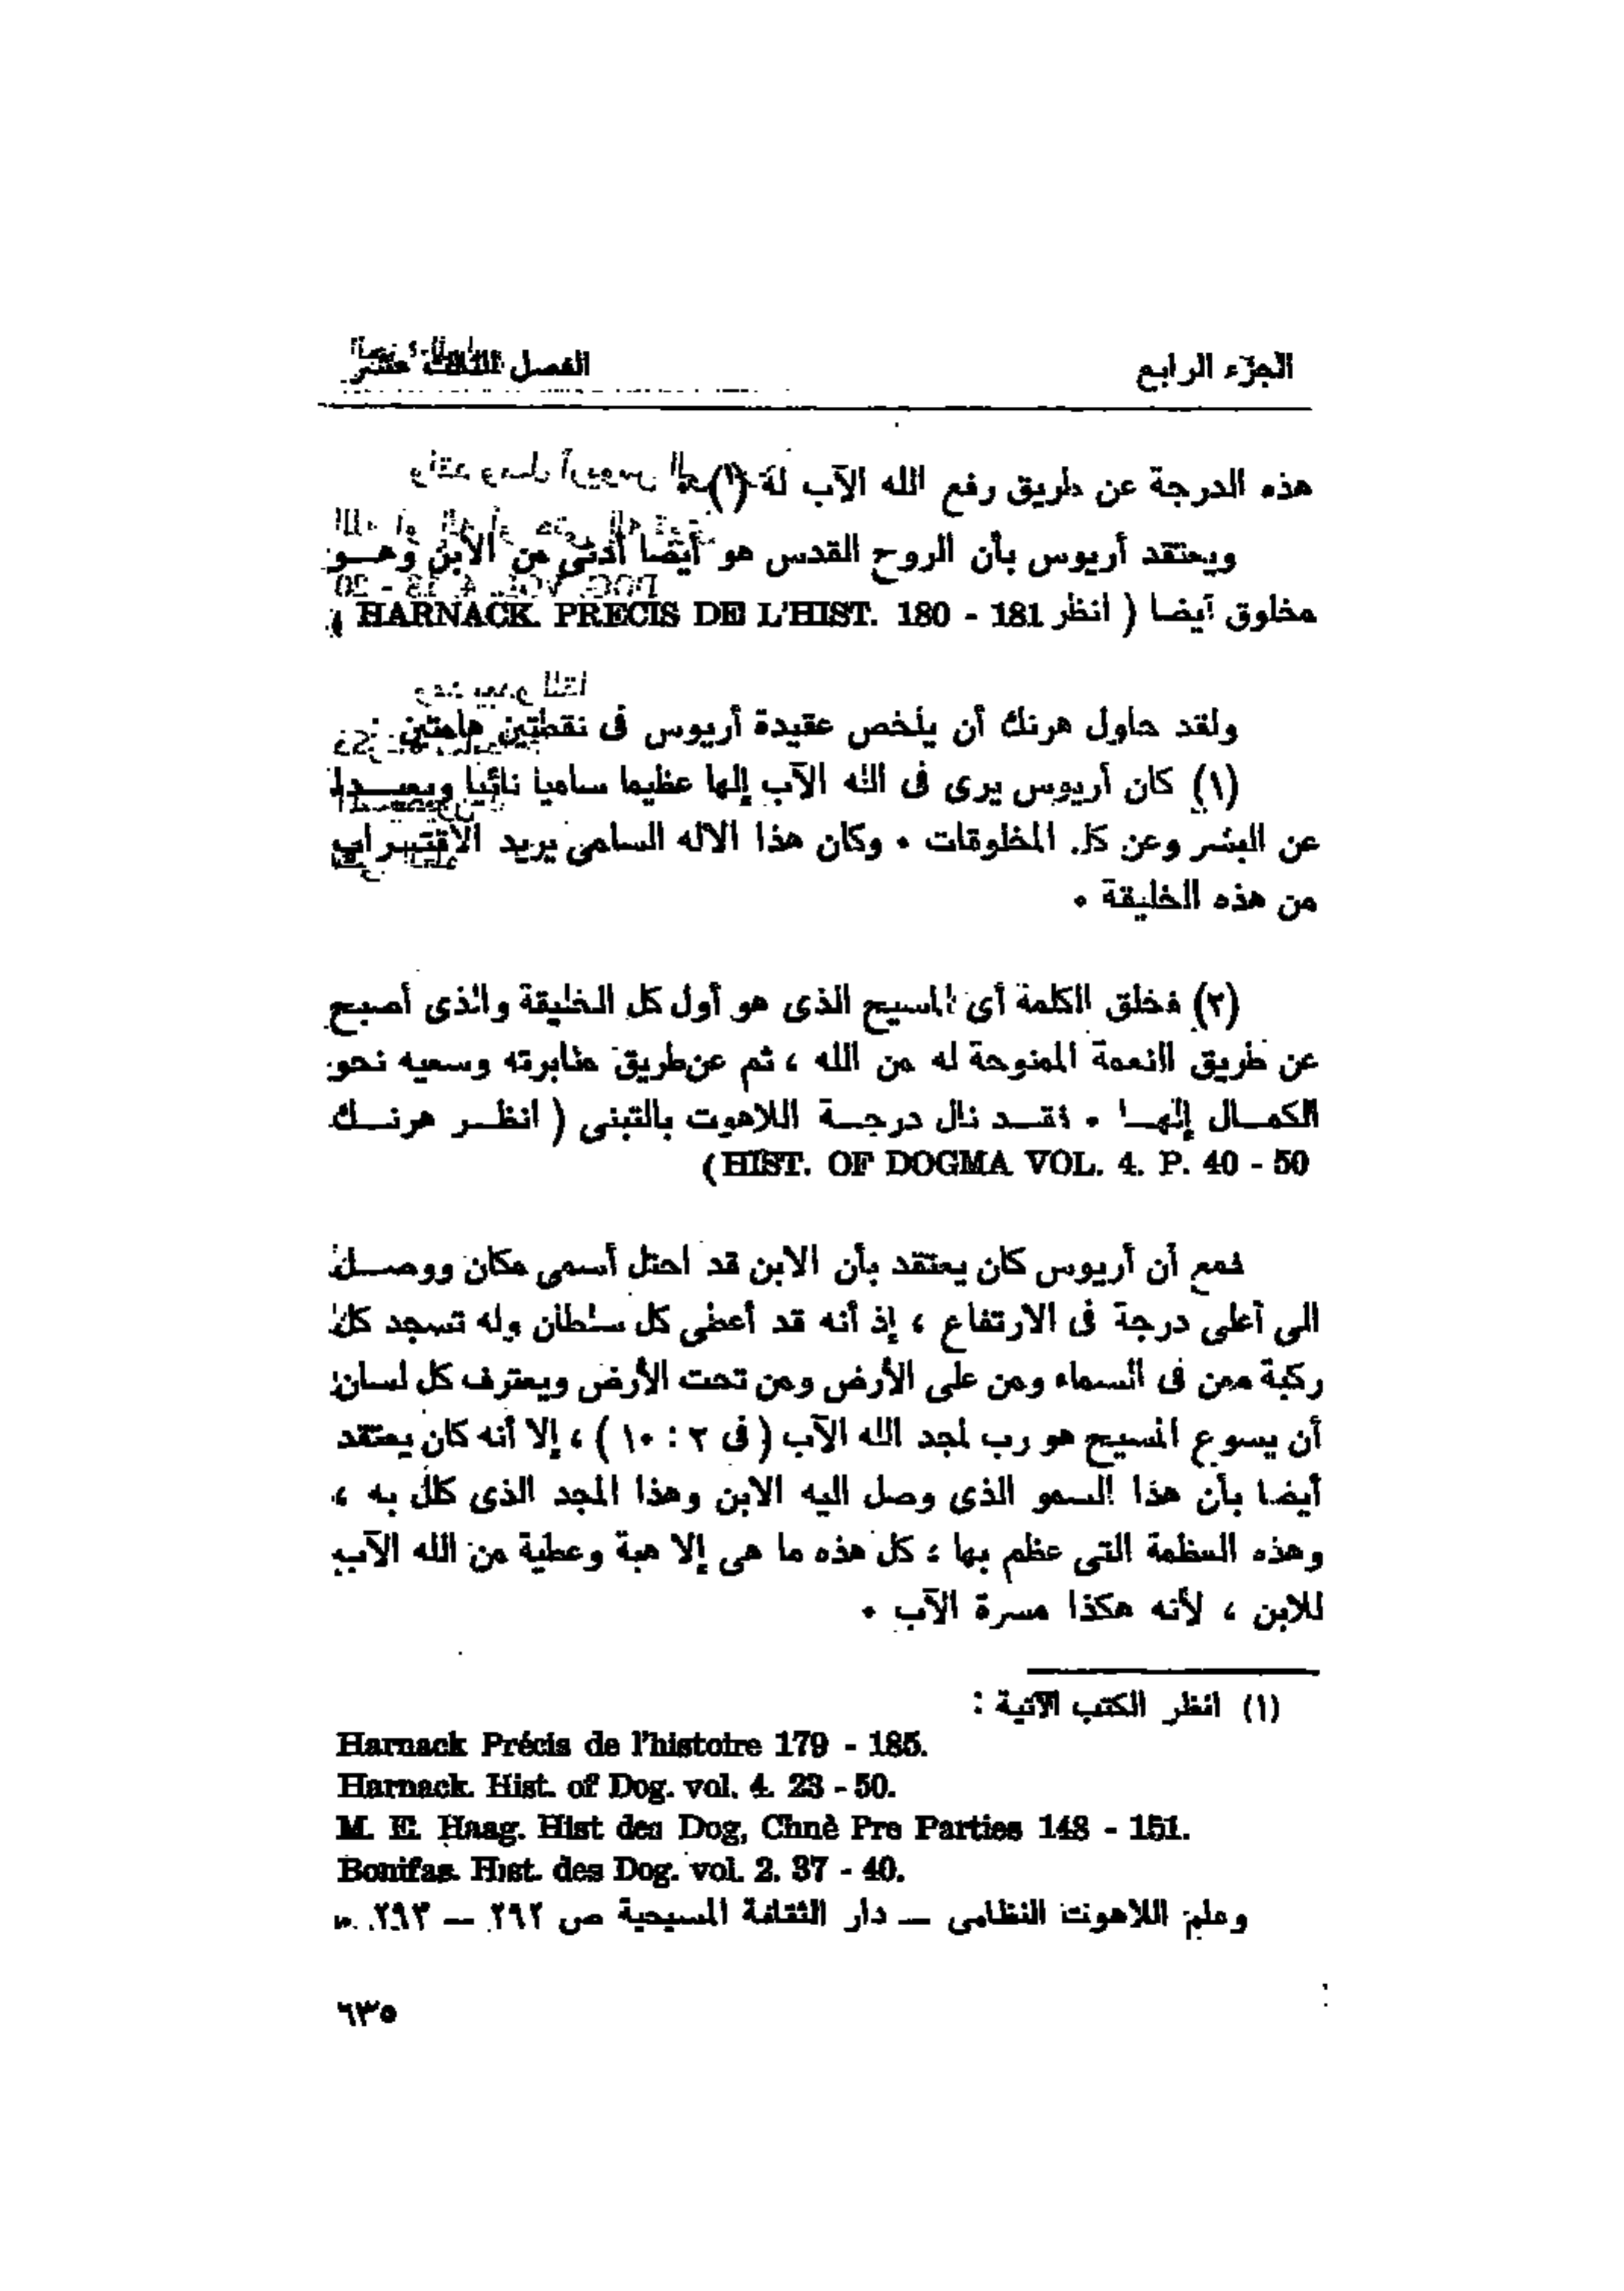 الجزء الرابع
الفصل الثالث عشر
هذه الدرجة عن طريق رفع الله الآب له (١).
ويعتقد أريوس بأن الروح القدس هو أيضا أدنى من الابن وهـــو
مخلوق أيضا ( انظر HARNACK. PRECIS DE L'HIST. 180 - 181 ).
ولقد حاول هرنك أن يلخص عقيدة أريوس فى نقطتين هامتين :
(١) كان أريوس يرى فى الله الآب إلها عظيما ساميا نائيا وبعيـــدا
عن البشر وعن كل المخلوقات ٠ وكان هذا الاله السامى يريد الاقتـــراب
من هذه الخليقة ٠
(٢) فخلق الكلمة أى المسيح الذى هو أول كل الخليقة والذى أصبح
عن طريق النعمة الممنوحة له من الله ، ثم عن طريق مثابرته وسعيه نحو
الكمـــال إلهـــا ٠ فقـــد نال درجـــة اللاهوت بالتبنى ( انظـــر هرنـــك
HIST. OF DOGMA VOL. 4. P. 40 - 50)
فمع أن أريوس كان يعتقد بأن الابن قد احتل أسمى مكان ووصـــل
الى أعلى درجة فى الارتفاع ، إذ أنه قد أعطى كل سلطان وله تسجد كل
ركبة ممن فى السماء ومن على الأرض ومن تحت الأرض ويعترف كل لسان
أن يسوع المسيح هو رب لمجد الله الآب ( فى ٢ : ١٠ ) ، إلا أنه كان يعتقد
أيضا بأن هذا السمو الذى وصل اليه الابن وهذا المجد الذى كلل به ،
وهذه العظمة التى عظم بها ؛ كل هذه ما هى إلا هبة وعطية من الله الآب
للابن ، لأنه هكذا مسرة الآب ٠
(١) انظر الكتب الآتية :
Harnack Précis de l'histoire 179 - 185.
Harnack. Hist. of Dog. vol. 4. 23 - 50.
M. E. Haag. Hist des Dog, Chnè Pre Parties 148 - 151.
Bonifas. Hist. des Dog. vol. 2. 37 - 40.
وعلم اللاهوت النظامى — دار الثقافة المسيحية ص ٢٩٢ — ٢٩٣.
٦٣٥